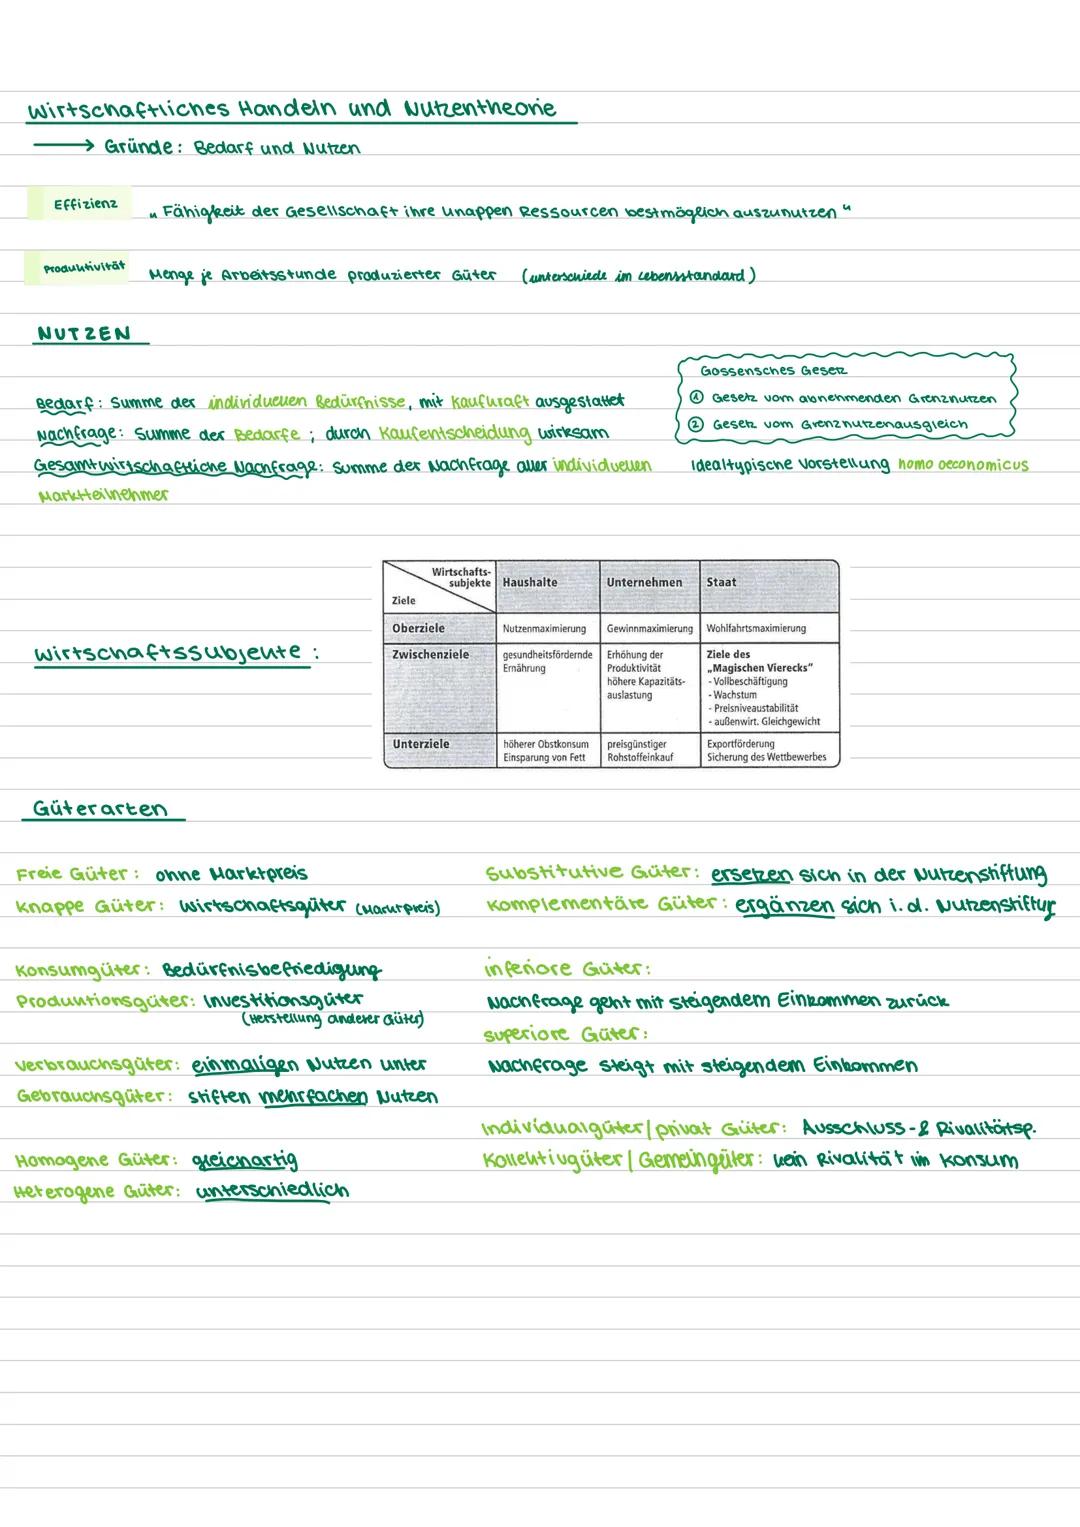 Wirtschaftliches Handeln und Nutzentheorie
→ Gründe: Bedarf und Nutzen
Effizienz „Fähigkeit der Gesellschaft ihre knappen Ressourcen bestmöglich auszunutzen"
Produktivität Menge je Arbeitsstunde produzierter Güter (unterschiede im Lebensstandard)
NUTZEN
Bedarf: Summe der individuellen Bedürfnisse, mit Kaufkraft ausgestattet
Nachfrage: Summe der Bedarfe; durch Kaufentscheidung wirksam
Gesamtwirtschaftliche Nachfrage: Summe der Nachfrage aller individuellen
Marktteilnehmer
Gossensches Gesetz
① Gesetz vom abnehmenden Grenznutzen
② Gesetz vom Grenznutzenausgleich
Idealtypische Vorstellung homo oeconomicus
Wirtschaftssubjekte:
Wirtschafts-
subjekte Haushalte Unternehmen Staat
Ziele
Oberziele Nutzenmaximierung Gewinnmaximierung Wohlfahrtsmaximierung
Zwischenziele gesundheitsfördernde Erhöhung der Ziele des
Ernährung Produktivität „Magischen Vierecks"
höhere Kapazitäts- - Vollbeschäftigung
auslastung - Wachstum
- Preisniveaustabilität
- außenwirt. Gleichgewicht
Unterziele höherer Obstkonsum preisgünstiger Exportförderung
Einsparung von Fett Rohstoffeinkauf Sicherung des Wettbewerbes
Güterarten
Freie Güter: ohne Marktpreis
Knappe Güter: Wirtschaftsgüter (Marktpreis)
Konsumgüter: Bedürfnisbefriedigung
Produktionsgüter: Investitionsgüter
(Herstellung anderer Güter)
Verbrauchsgüter: einmaligen Nutzen unter
Gebrauchsgüter: stiften mehrfachen Nutzen
Homogene Güter: gleichartig
Heterogene Güter: unterschiedlich
Substitutive Güter: ersetzen sich in der Nutzenstiftung
Komplementäre Güter: ergänzen sich i. d. Nutzenstiftung
inferiore Güter:
Nachfrage geht mit steigendem Einkommen zurück
superiore Güter:
Nachfrage steigt mit steigendem Einkommen
Individualgüter/privat Güter: Ausschluss- & Rivalitätsp.
Kollektivgüter/Gemeingüter: kein Rivalität im Konsum